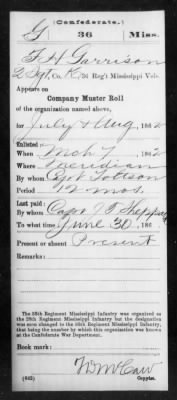 (Confederate.)
G 36 Miss.
F H Garrison
2 Sgt, Co. K, 36 Reg't Mississippi Vols.
Appears on
Company Muster Roll
of the organization named above,
for July & Aug, 1862
Enlisted:
When Mch 7, 1862
Where Meridian
By whom Capt
Period 12 mos.
Last paid:
By whom Capt J T
To what time June 30, 186
Present or absent Present
Remarks:
The 36th Regiment Mississippi Infantry was organized as
the 38th Regiment Mississippi Infantry but the designation
was soon changed to the 36th Regiment Mississippi Infantry,
that being the number by which this organization was known
at the Confederate War Department.
Book mark:
W McCaw
(642) Copyist.